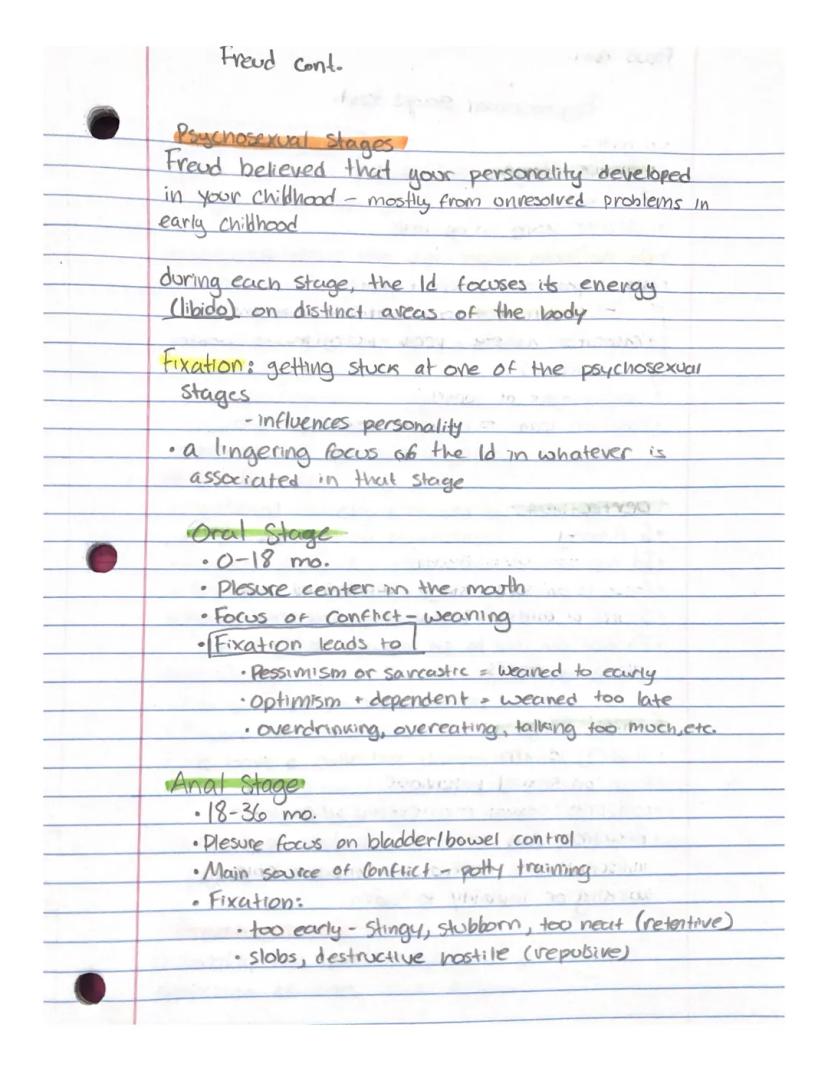 Freud cont.
Psychosexual stages
Freud believed that your personality developed
in your childhood - mostly from unresolved problems in
early childhood
during each stage, the Id focuses its energy
(libido) on distinct areas of the body
Fixation: getting stuck at one of the psychosexual
stages
- influences personality
• a lingering focus of the Id in whatever is
associated in that stage
Oral Stage
• 0-18 mo.
• Plesure center in the mouth
• Focus of conflict - weaning
• Fixation leads to
• Pessimism or sarcastic = weaned to early
• Optimism + dependent = weaned too late
• overdrinking, overeating, talking too much, etc.
Anal Stage
• 18-36 mo.
• Plesure focus on bladder/bowel control
• Main source of conflict - potty training
• Fixation:
• too early - stingy, stubborn, too neat (retentive)
• slobs, destructive hostile (repulsive)